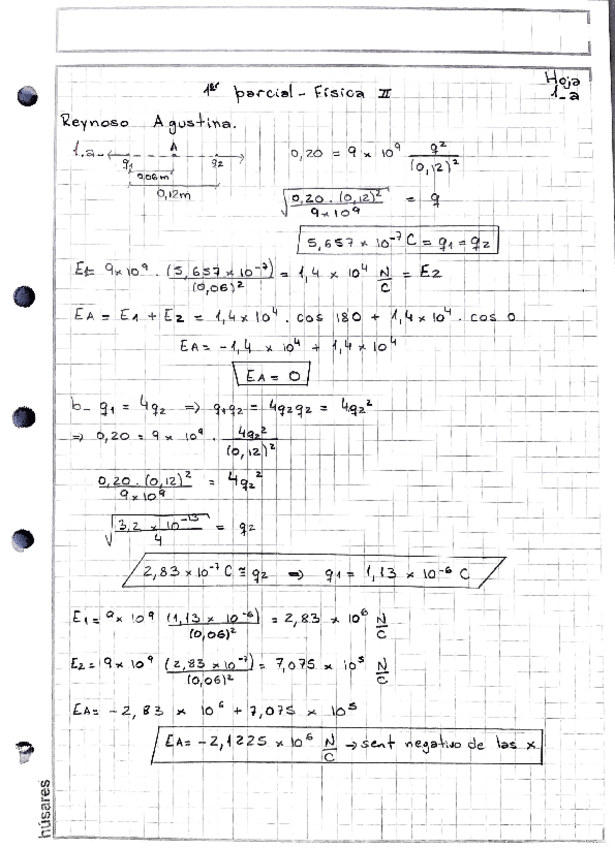 Hoja
1-a
1er parcial - Física II
Reynoso Agustina.
1.a-
A
q1 q2
0,06m
0,12m
0,20 = 9 x 10^9 q^2/(0,12)^2
√(0,20 . (0,12)^2 / 9x10^9) = q
5,657 x 10^-7 C = q1 = q2
E1= 9x10^9 . (5,657 x 10^-7)/(0,06)^2 = 1,4 x 10^4 N/C = E2
EA = E1 + E2 = 1,4x10^4 . cos 180 + 1,4x10^4 . cos 0
EA= -1,4 x 10^4 + 1,4x10^4
EA = 0
b- q1 = 4q2 => q1q2 = 4q2q2 = 4q2^2
=> 0,20 = 9 x 10^9 . 4q2^2/(0,12)^2
0,20 . (0,12)^2 / 9x10^9 = 4q2^2
√(3,2 x 10^-13 / 4) = q2
2,83 x 10^-7 C ≅ q2 => q1 = 1,13 x 10^-6 C
E1 = 9x10^9 (1,13 x 10^-6)/(0,06)^2 = 2,83 x 10^6 N/C
E2 = 9x10^9 (2,83 x 10^-7)/(0,06)^2 = 7,075 x 10^5 N/C
EA= -2,83 x 10^6 + 7,075 x 10^5
EA= -2,1225 x 10^6 N/C → sent negativo de las x
húsares